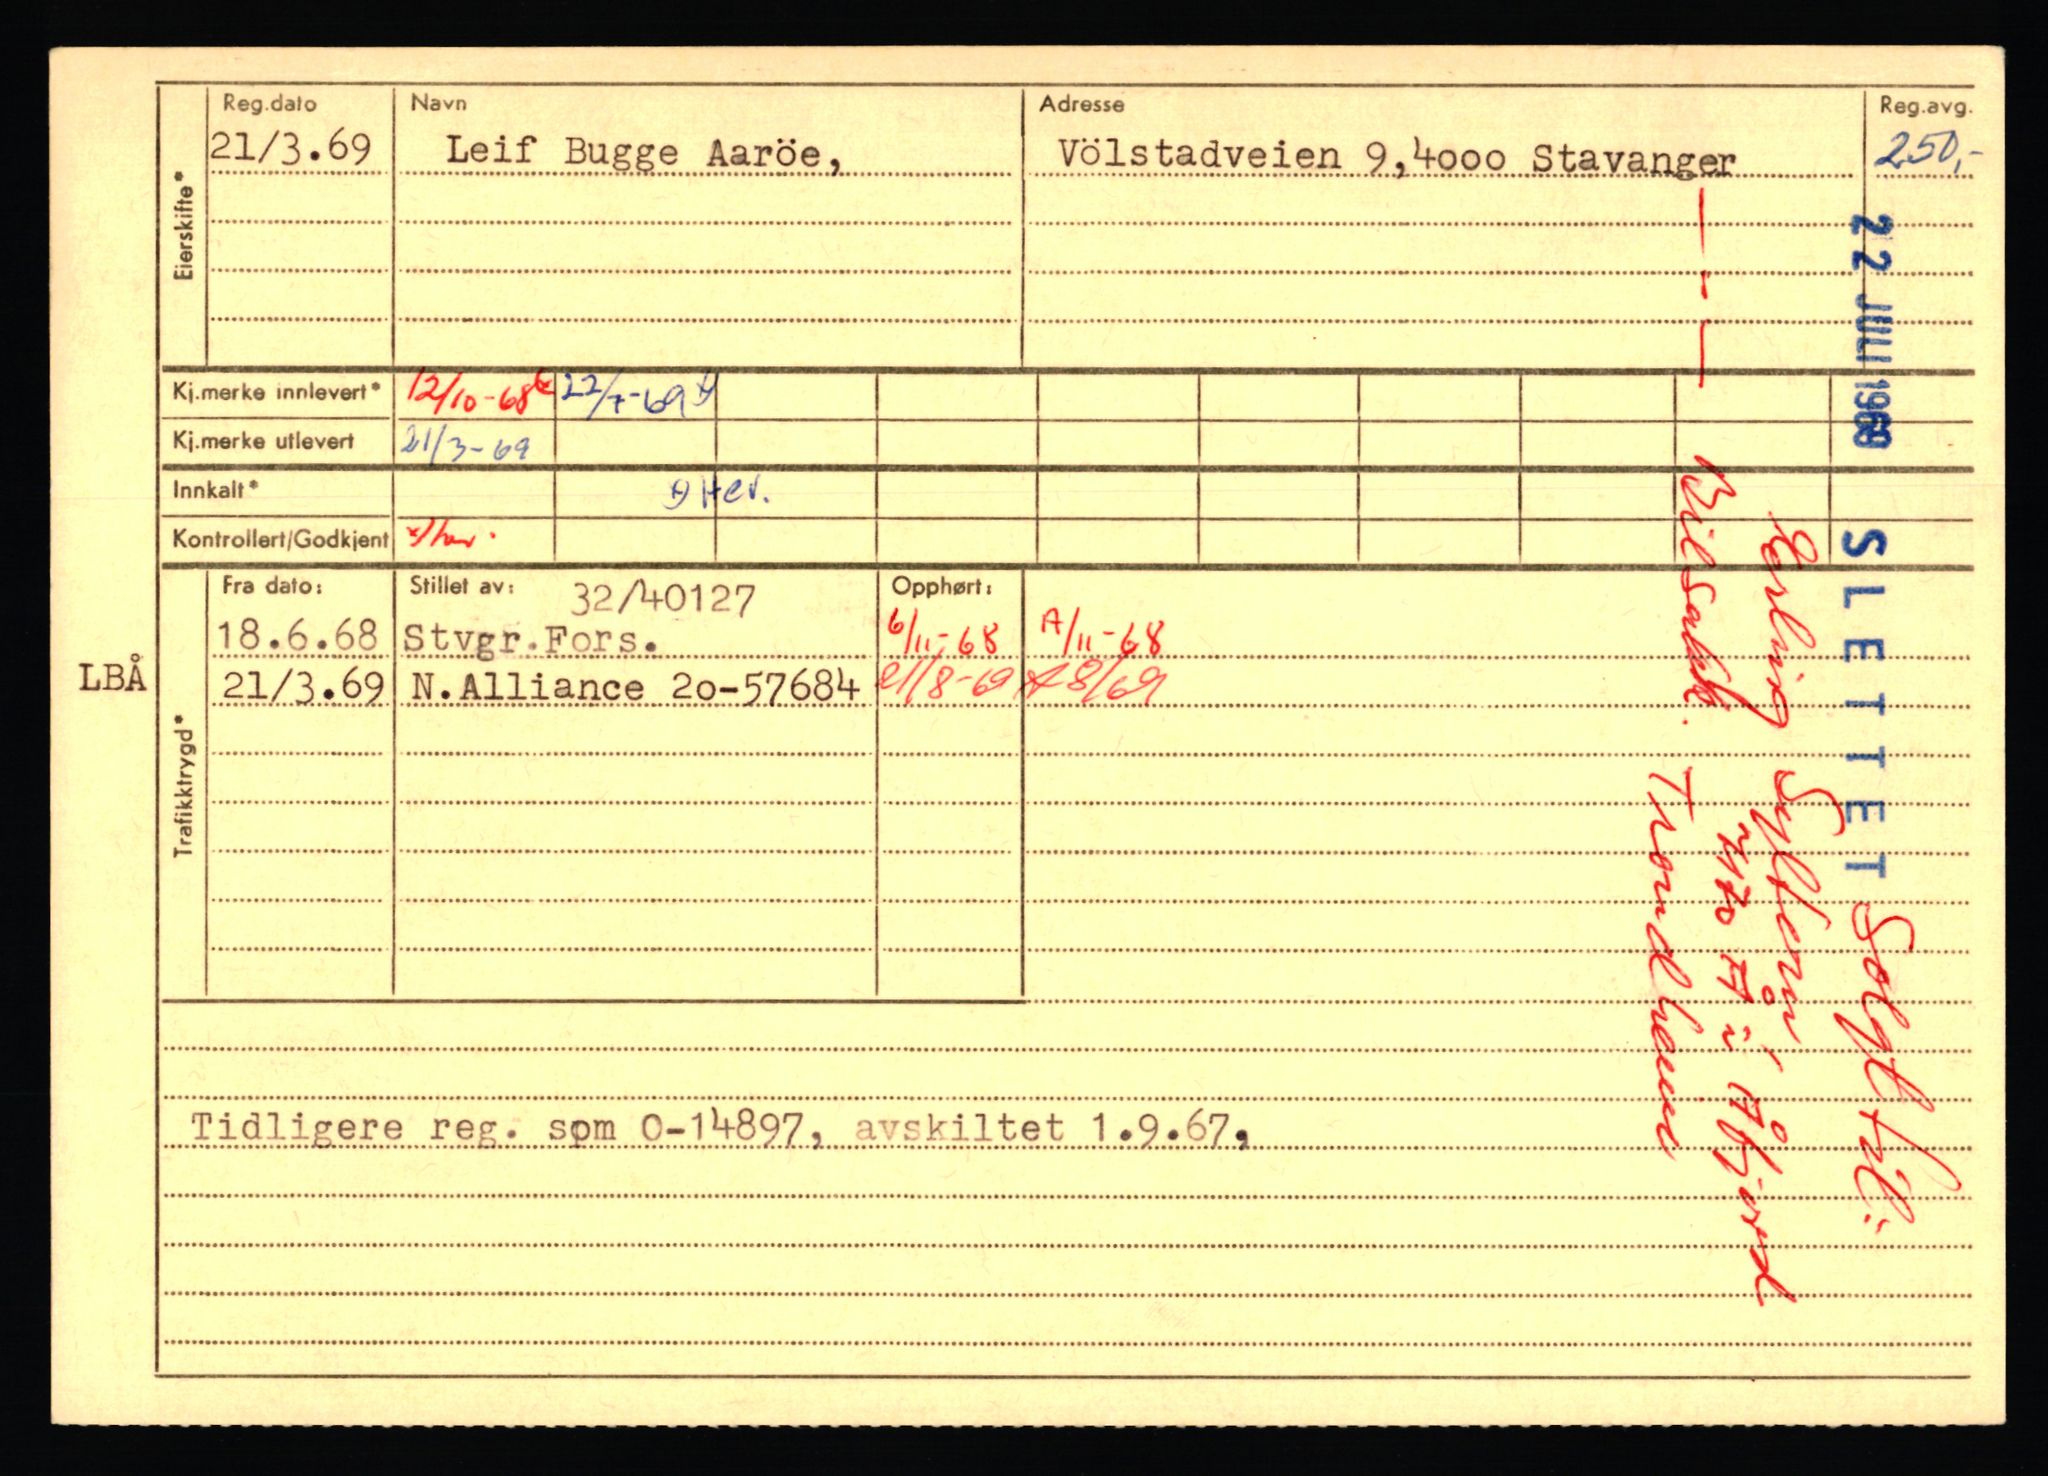 Eierskifte*
Reg.dato Navn Adresse Reg.avg.
21/3.69 Leif Bugge Aaröe, Völstadveien 9,4ooo Stavanger 250,-
Kj.merke innlevert* 12/10-68 22/7-69
Kj.merke utlevert 21/3-69
Innkalt* Hev.
Kontrollert/Godkjent
Trafikktrygd*
Fra dato: Stillet av: 32/40127 Opphørt:
18.6.68 Stvgr.Fors. 6/11-68 A/11-68
LBÅ 21/3.69 N.Alliance 2o-57684 21/8-69 A 8/69
Tidligere reg. som O-14897, avskiltet 1.9.67,
22 JULI 1969 SLETTET
Solgt til:
Erling
7170 Å i Åfjord
Trondheim